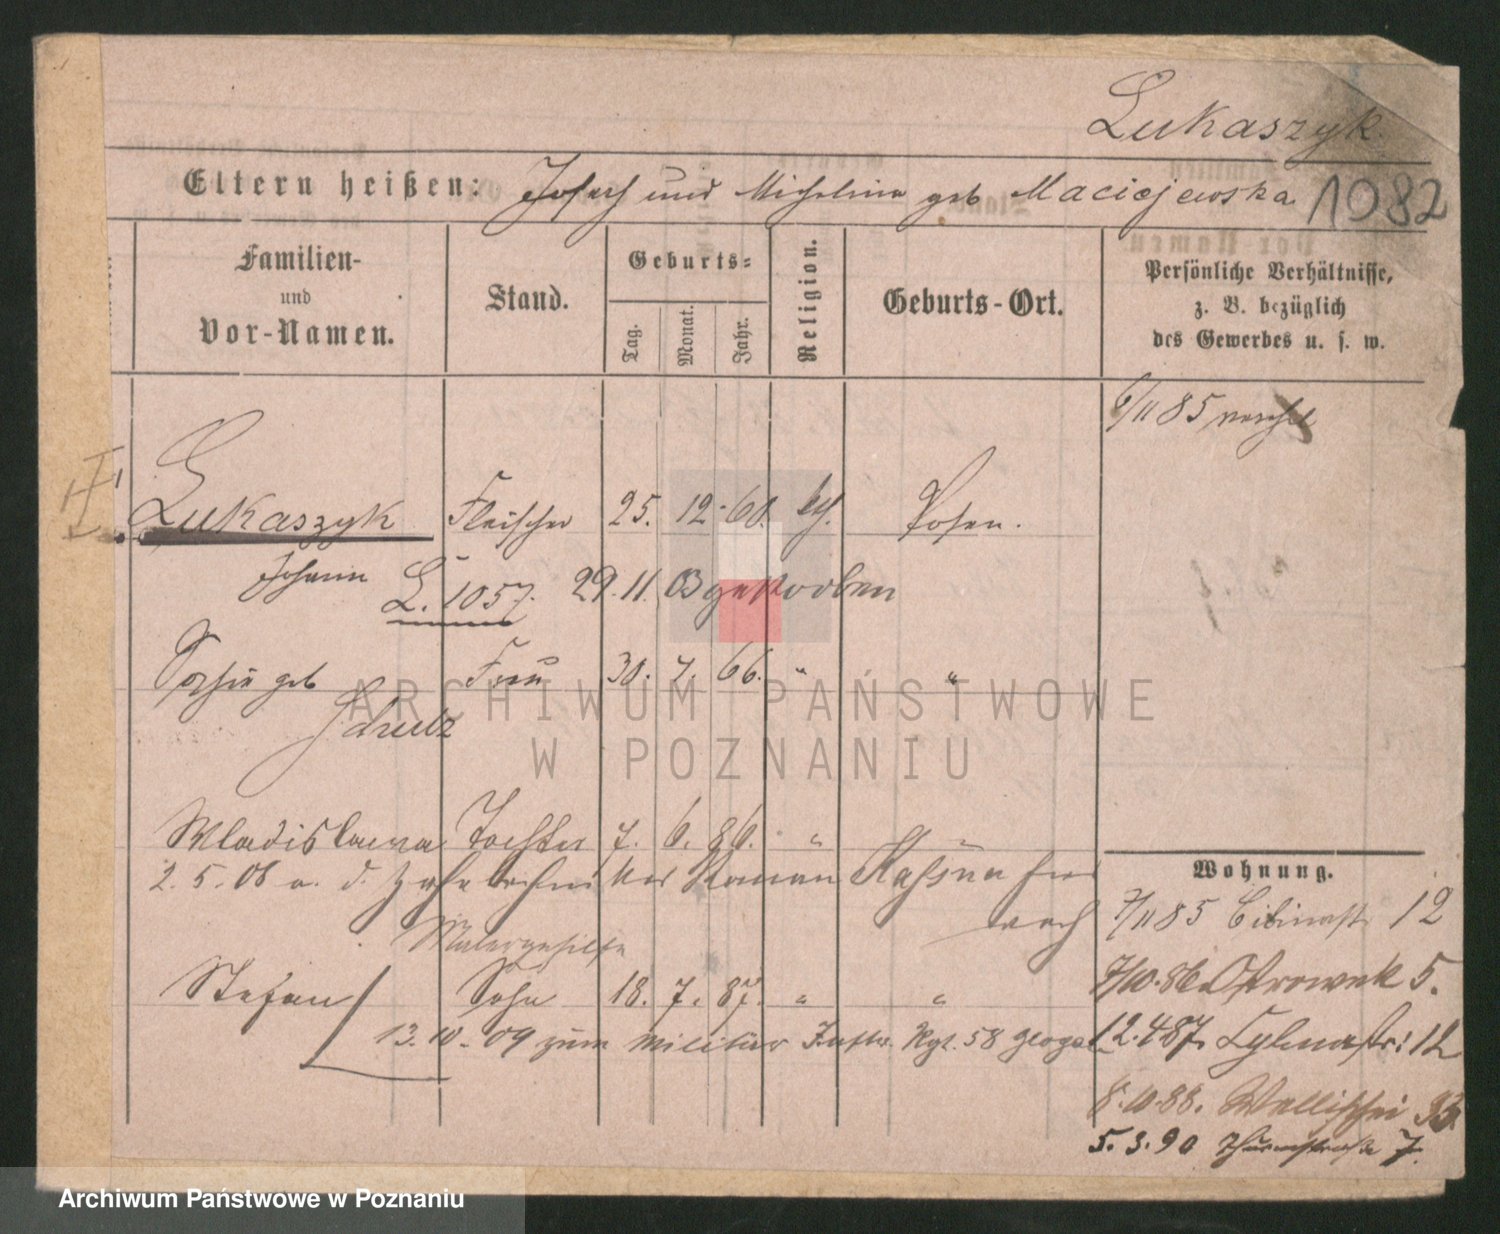 Lukaszyk.
Eltern heißen: Josef und Michalina geb Maciejewska 1082
Familien-
und
Vor-Namen.
Stand.
Geburts-
Tag.
Monat.
Jahr.
Religion.
Geburts-Ort.
Persönliche Verhältnisse,
z. B. bezüglich
des Gewerbes u. s. w.
6/11 85
Lukaszyk Fleischer 25. 12. 60. kth. Posen.
Johann L. 1057. 29. 11. 03 gestorben
Sophie geb Frau 30. 7. 66. " "
Schulz
Wladislawa Tochter 7. 6. 86. "
2. 5. 08 a. d. Zahntechniker Roman
Malergehilfe
Stefan Sohn 18. 7. 87. " "
13. 10. 09 zum Militär Inftr. Rgt. 58 Glogau
Wohnung.
7/11 85 12
7/10. 86. Ostrowek 5.
12. 4 87. 12
8. 10. 88. Wallischei 93
5. 3. 90 Thurmstraße 7.
ARCHIWUM PAŃSTWOWE
W POZNANIU
Archiwum Państwowe w Poznaniu